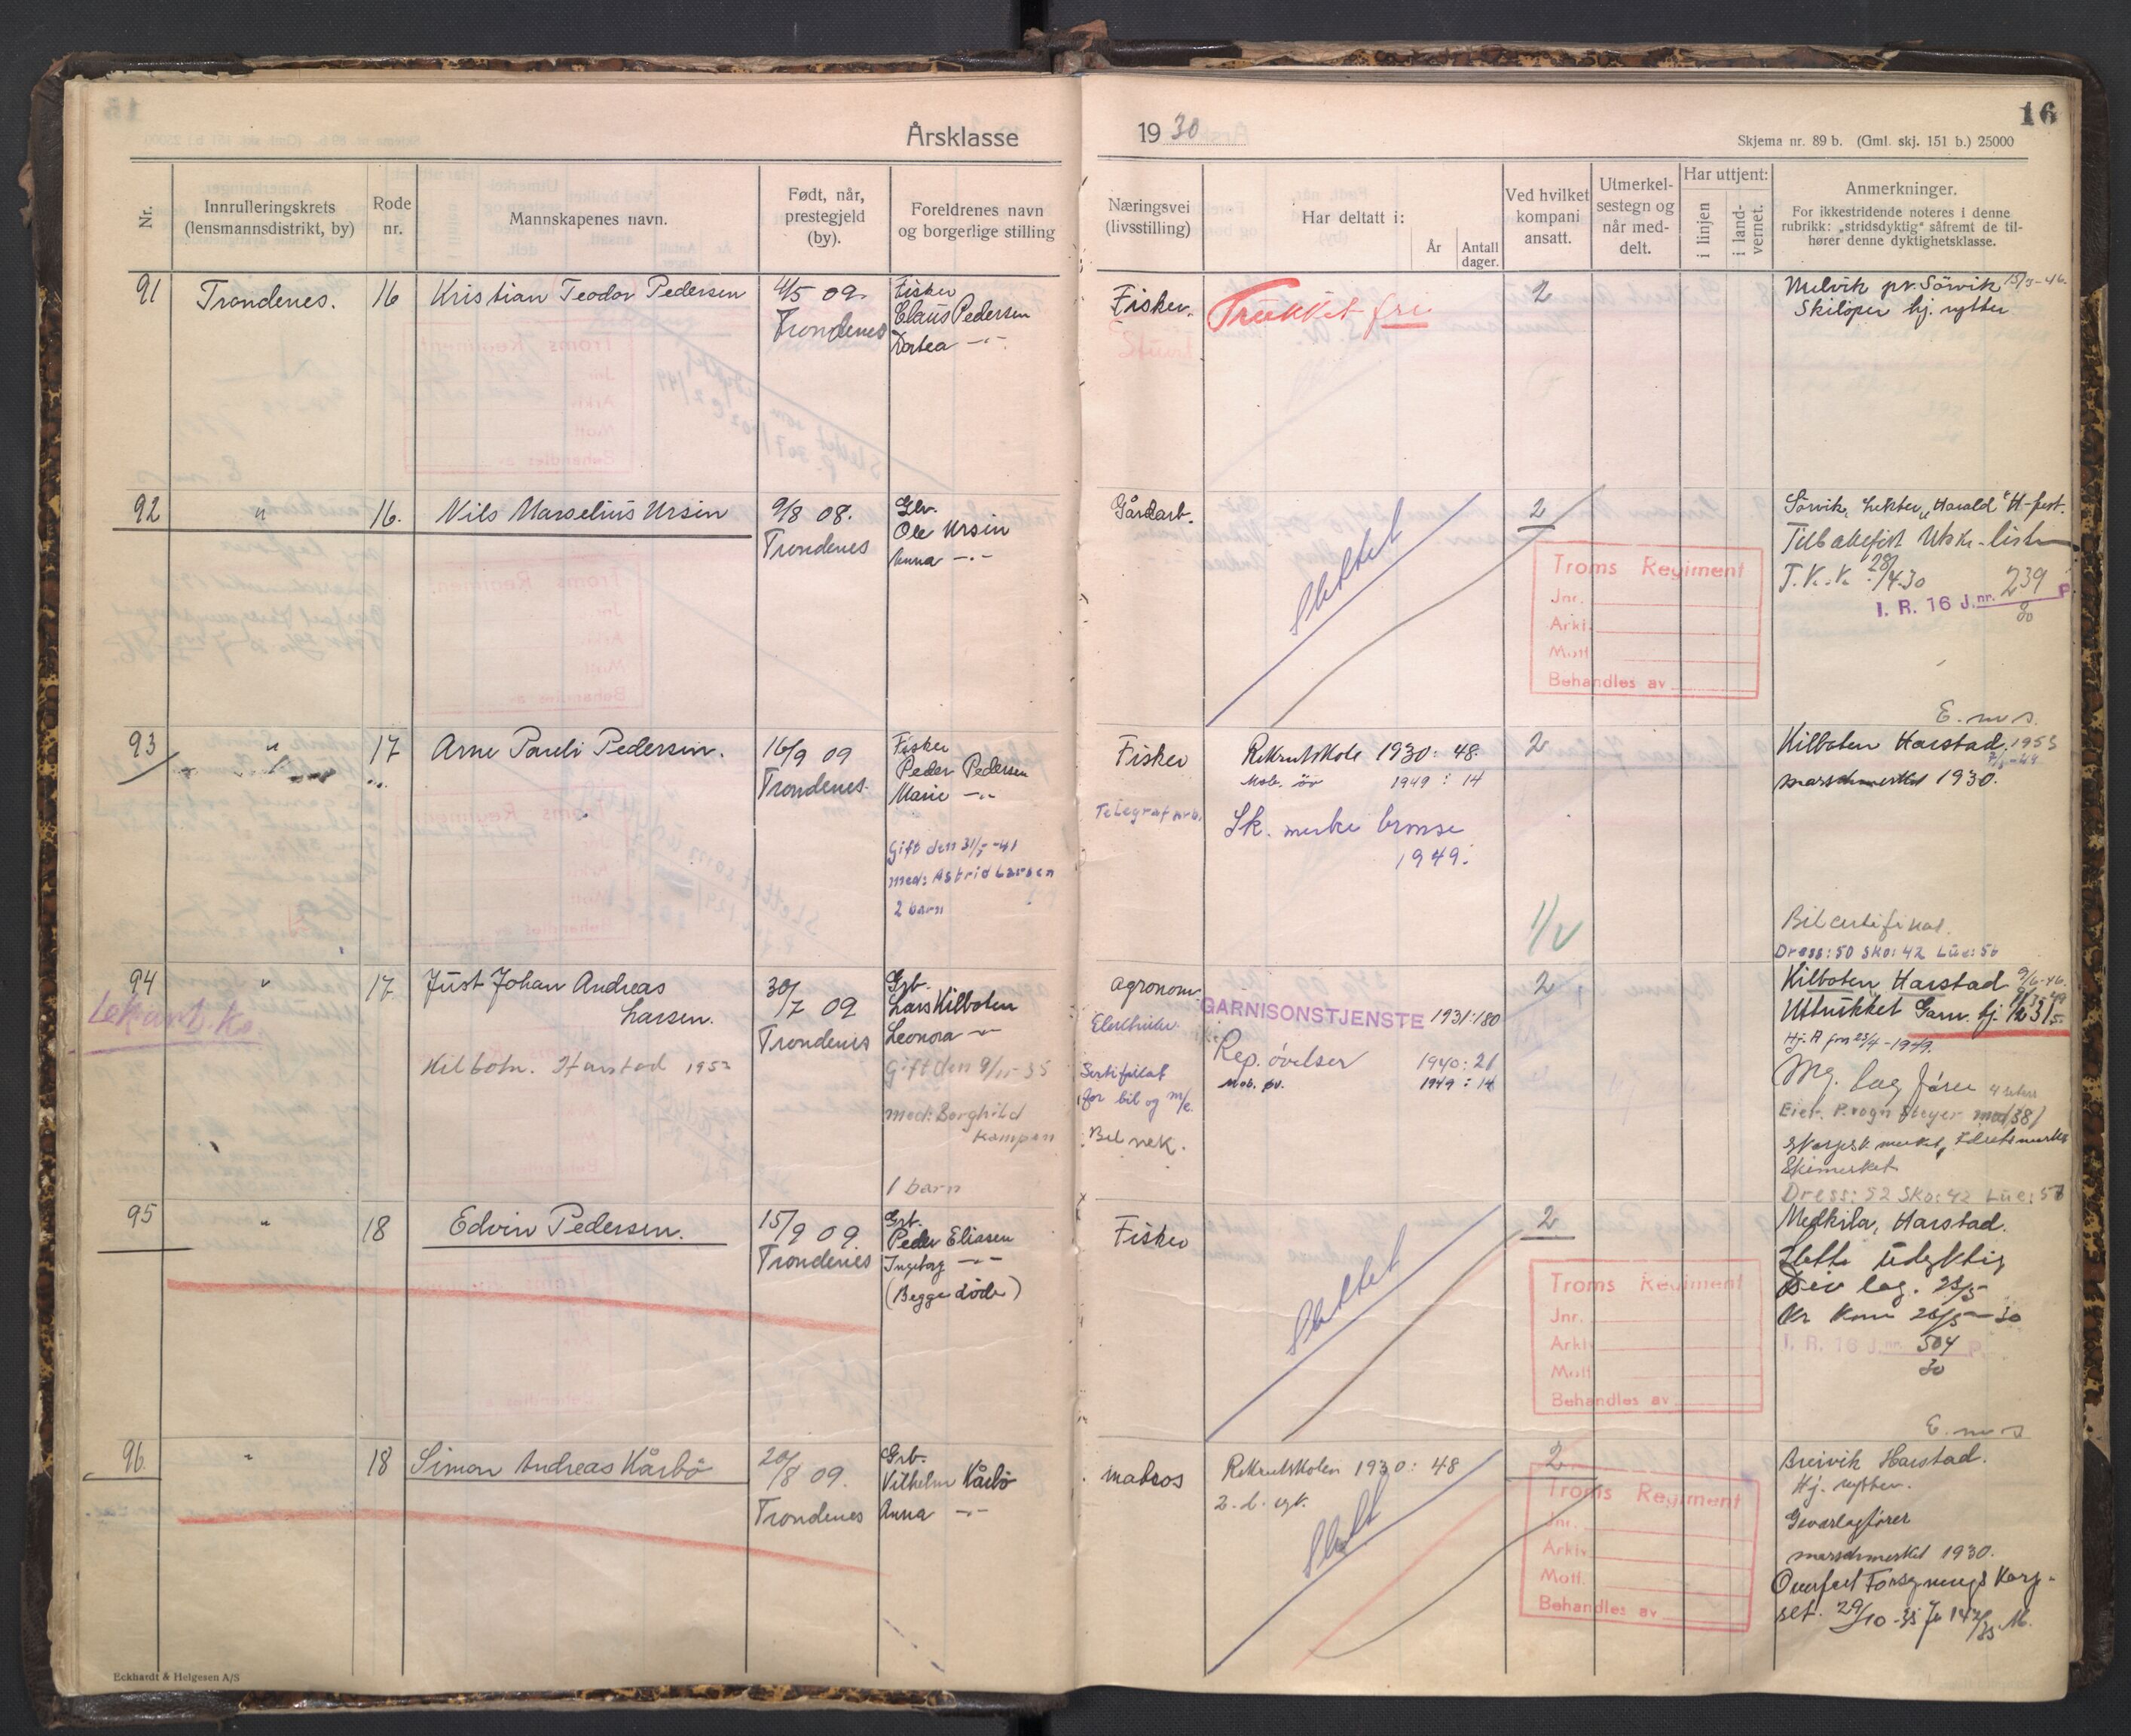 16
Årsklasse 1930
Skjema nr. 89 b. (Gml. skj. 151 b.) 25000
Nr.
Innrulleringskrets
(lensmannsdistrikt, by)
Rode
nr.
Mannskapenes navn.
Født, når,
prestegjeld
(by).
Foreldrenes navn
og borgerlige stilling
Næringsvei
(livsstilling)
Har deltatt i:
År
Antall
dager.
Ved hvilket
kompani
ansatt.
Utmerkel-
sestegn og
når med-
delt.
Har uttjent:
i linjen
i land-
vernet.
Anmerkninger.
For ikkestridende noteres i denne
rubrikk: „stridsdyktig" såfremt de til-
hører denne dyktighetsklasse.
91 Trondenes. 16 Kristian Teodor Pedersen
09.
Trondenes
Fisker
Claus Pedersen
Dortea -"-
Fisker.
Trukket fri
2
Melvik pr. Sörvik 15/3-46.
Skilöper hj. rytter
92 " 16. Nils Marselius Ursin
9/8 08.
Trondenes
Ole Ursin
Anna -"-
Gårdarb.
Slettet
2
Troms Regiment
Jnr.
Arkiv
Mott.
Behandles av
Sörvik, "Harald"
28/4-30
I. R. 16 J.nr. 239 P.
30
93 " 17 Arne Pauli Pedersen.
16/9 09
Trondenes.
Fisker
Peder Pedersen
Marie -"-
Gift den 31/5-41
med: Astrid Larsen
2 barn
Fisker
Telegrafarb.
Rekrutskole 1930: 48
Mob. öv 1949: 14
Sk. merke bronse
1949.
2
E. m s.
Kilboten Harstad, 1953
marschmerket 1930.
Bilcertifikat.
Dress: 50 Sko: 42 Lue: 56
94 " 17 Just Johan Andreas
Larsen.
Kilbotn. Harstad 1953
30/7 09
Trondenes
Grb.
Lars Kilboten
Leonora -"-
Gift den 9/11-35
med: Borghild
Kampen
1 barn
agronom
Elektriker.
Sertifikat
for bil og m/c.
Bil rek.
GARNISONSTJENSTE 1931:180
Rep. övelser 1940: 21
Mob. öv. 1949: 14
2
Kilboten, Harstad 9/6-46.
Utrukket Garn. tj.
Hj. A fra 25/4-1949.
Mg. lag förer
Eier. P.vogn Steyer mod/38/
Skimerket
Dress: 52 Sko: 42 Lue: 57
95 " 18 Edvin Pedersen.
15/9 09.
Trondenes
Grb.
Peder Eliasen
Ingeborg -"-
(Begge döde)
Fisker
Slettet
2
Troms Regiment
Jnr.
Arkiv
Mott
Behandles av
Medkila, Harstad.
udyktig
30
I. R. 16 J.nr. 504 P.
30
96. " 18 Simon Andreas Kårbö
20/8 09.
Trondenes
Grb.
Vilhelm Kårbö
Anna -"-
matros
Rekrutskolen 1930: 48
Slett
2
Troms Regiment
Jnr.
Arkiv
Mott.
Behandles av
E. m s
Breivik Harstad.
Hj. rytter.
Geværlagförer
marschmerket 1930.
Overfört Forsynings Korp-
set. 29/10-35
Eckhardt & Helgesen A/S